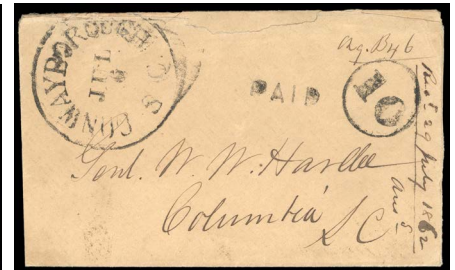 CONWAYBOROUGH S.C.
JUL
PAID
10
Genl. W. W. Harllee
Columbia
S.C.
Recd. 29 July 1862
Ans